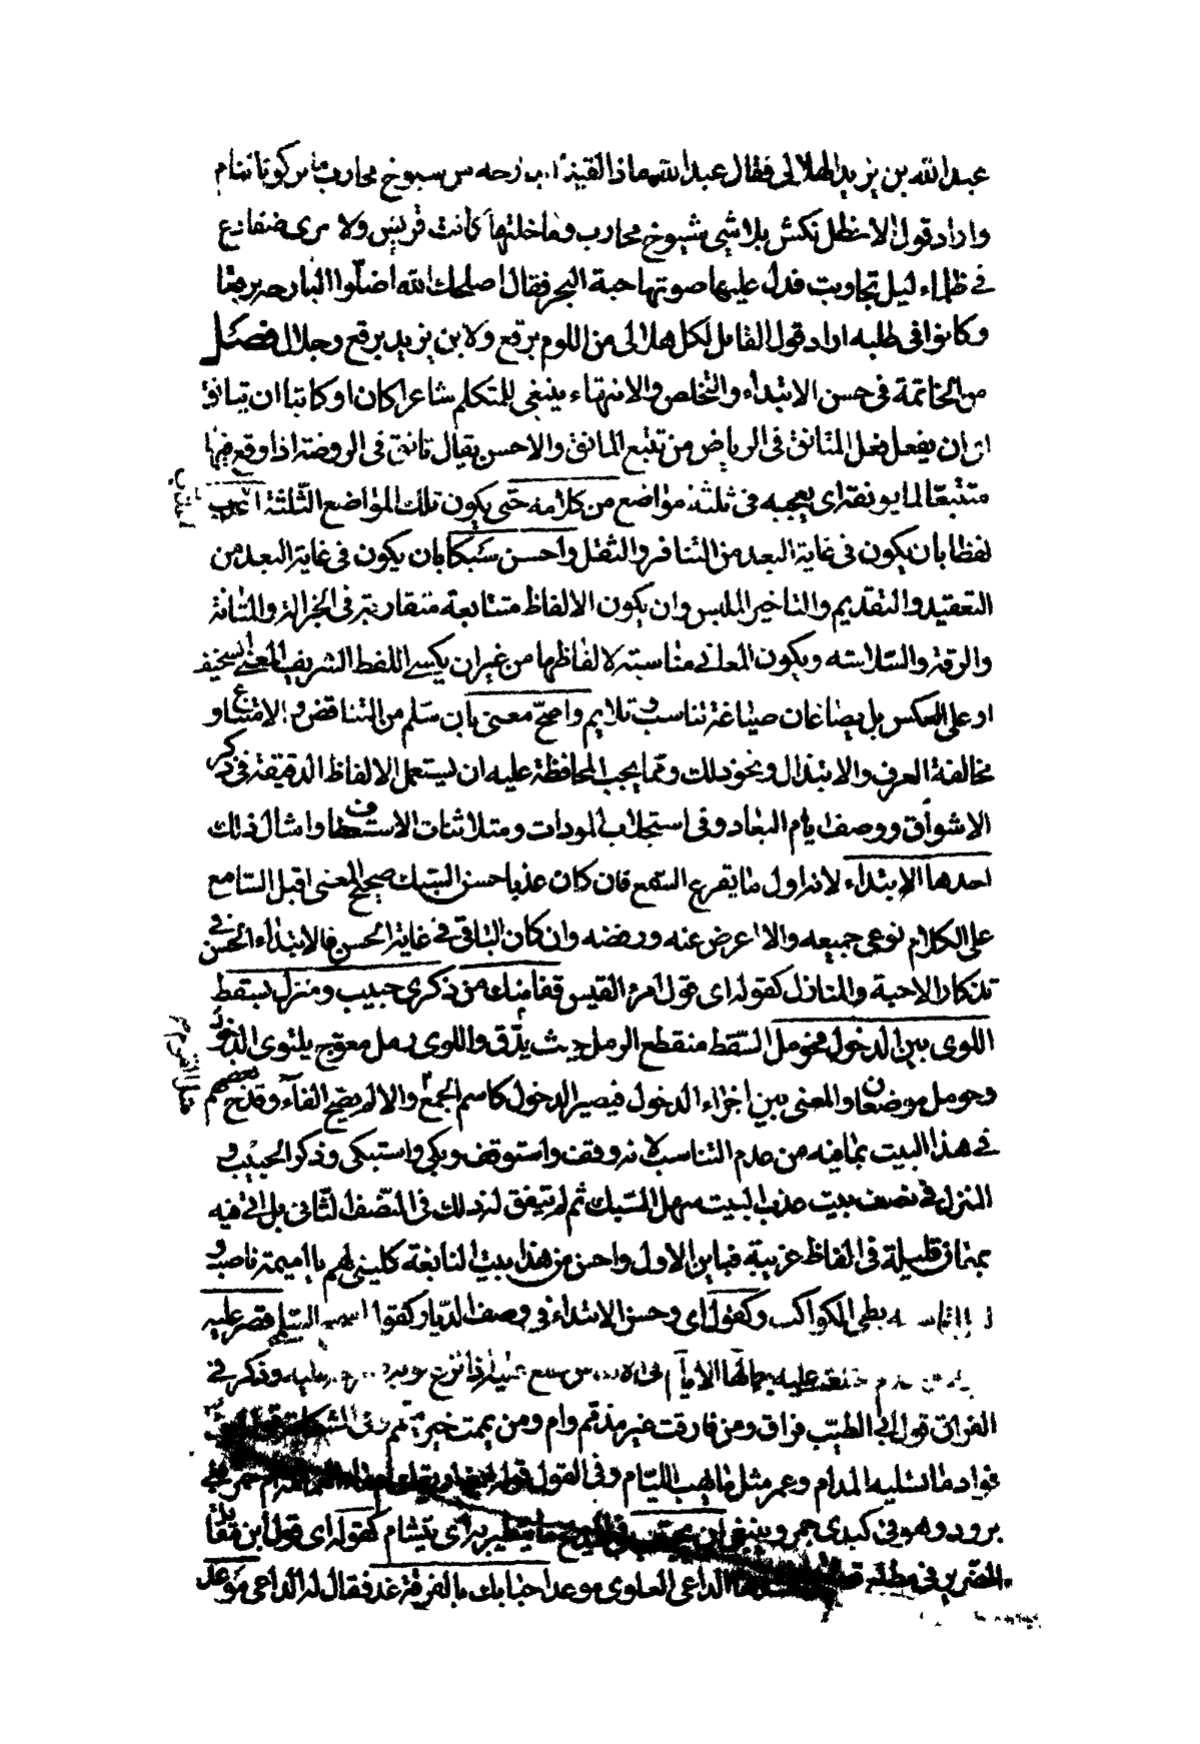 عبد الله بن يزيد الهلالي فقال عبد الله ماذا لقينا البارحه من شيوخ محارب ما تركونا ننام
واراد قول الاخطل تكش بلا شي شيوخ محارب وما خلتها كانت تريش ولا تبرى ضفادع
في ظلماء ليل تجاوبت فدل عليها صوتها حية البحر فقال اصلحك الله اضلوا البارحه برقعا
وكانوا في طلبه اراد قول القائل لكل هلالي من اللوم برقع ولابن يزيد برقع وجلال فصل
من الخاتمة في حسن الابتداء والتخلص والانتهاء ينبغي للمتكلم شاعرا كان او كاتبا ان يتانق
اي ان يفعل فعل المتانق في الرياض من تتبع المانق والاحسن يقال تانق في الروضه اذا وقع فيها
متتبعا لما يونقه اي يعجبه في ثلثة مواضع من كلامه حتى يكون تلك المواضع الثلثة اعذب
لفظا بان يكون في غاية البعد من التنافر والثقل واحسن سبكا بان يكون في غاية البعد من
التعقيد والتقديم والتاخير الملبس وان يكون الالفاظ متتابعة متقاربة في الجزالة والمتانة
والرقة والسلاسه ويكون المعاني مناسبة لالفاظها من غير ان يكسي اللفظ الشريف المعنى السخيف
او على العكس بل يصاغان صياغة تناسب وتلايم واصح معنى بان سلم من التناقض والامتناع و
مخالفة العرف والابتذال ونحو ذلك ومما يجب المحافظة عليه ان يستعمل الالفاظ الدقيقة في ذكر
الاشواق ووصف ايام البعاد وفي استجلاب المودات وملاينات الاستعطاف وامثال ذلك
احدها الابتداء لانه اول ما يقرع السمع فان كان عذبا حسن السبك صحيح المعنى اقبل السامع
على الكلام فوعى جميعه والا اعرض عنه ورفضه وان كان الباقي في غاية الحسن فالابتداء الحسن في
تذكار الاحبة والمنازل كقوله اي قول امرء القيس قفا نبك من ذكرى حبيب ومنزل بسقط
اللوى بين الدخول فحومل السقط منقطع الرمل حيث يدق واللوى رمل معوج يلتوى الدخول
وحومل موضعان والمعنى بين اجزاء الدخول فيصير الدخول كاسم الجمع والا لم يصح الفاء وقدح بعضهم
في هذا البيت بما فيه من عدم التناسب لانه وقف واستوقف وبكى واستبكى وذكر الحبيب و
المنزل في نصف بيت عذب البيت سهل السبك ثم لم يتفق له ذلك في النصف الثاني بل اتى فيه
بمعان قليلة في الفاظ غريبة فباين الاول واحسن من هذا بيت النابغة كليني لهم يا اميمة ناصب و
بطي الكواكب وكقوله اي وحسن الابتداء في وصف الديار كقول السلمي قصر عليه
خلعت عليه جمالها الايام وذكر في
الفراق قول ابي الطيب فراق ومن فارقت غير مذمم وام ومن يممت خير ميمم
فواد ما تسليه المدام وعمر مثل ما يهب اللئام وفي الغزل
برود وهو في كبدي جمر وينبغي ان يجتنب في المديح ما يتطير به اي يتشام كقوله اي قول ابن مقاتل
الضرير في مطلع الداعي العلوي موعد احبابك بالفرقة غد فقال له الداعي موعد